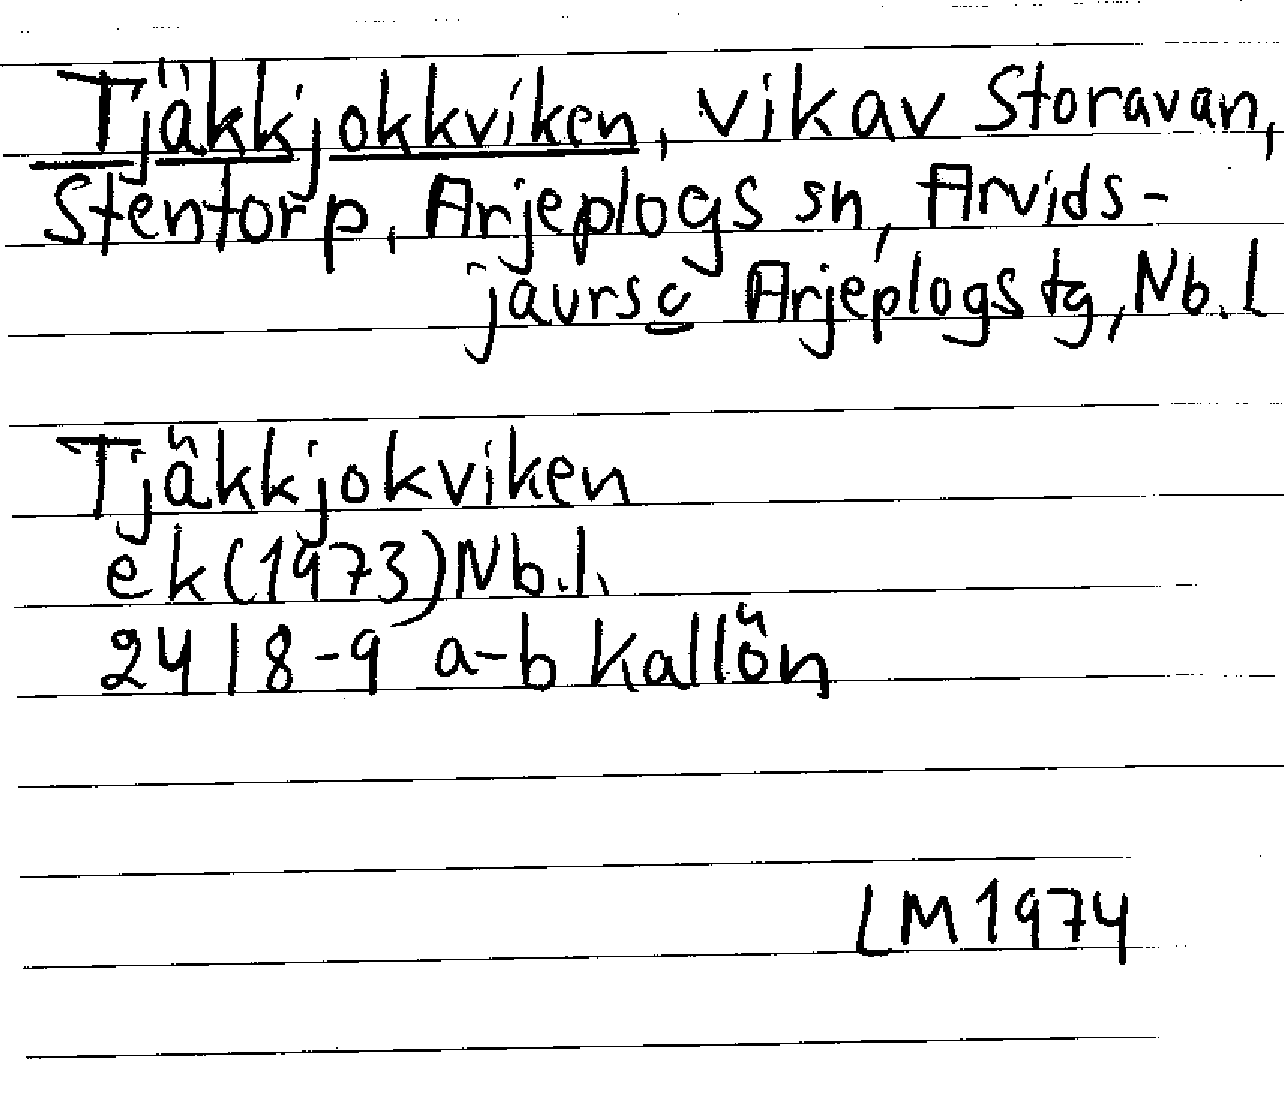 Tjäkkjokkviken, vik av Storavan,
Stentorp, Arjeplogs sn, Arvids-
jaurs o Arjeplogs tg, Nb. l
Tjäkkjokviken
ek (1973) Nb.l.
24 I 8-9 a-b Kallön
LM 1974